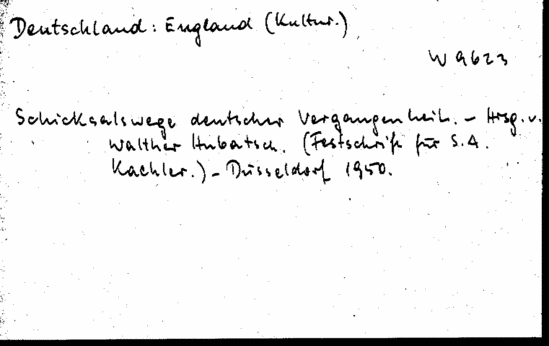 Deutschland: England (Kultur.)
W 9623
Schicksalswege deutscher Vergangenheit. - Hrsg. v.
Walther Hubatsch. (Festschrift für S.A.
Kaehler.) - Düsseldorf 1950.